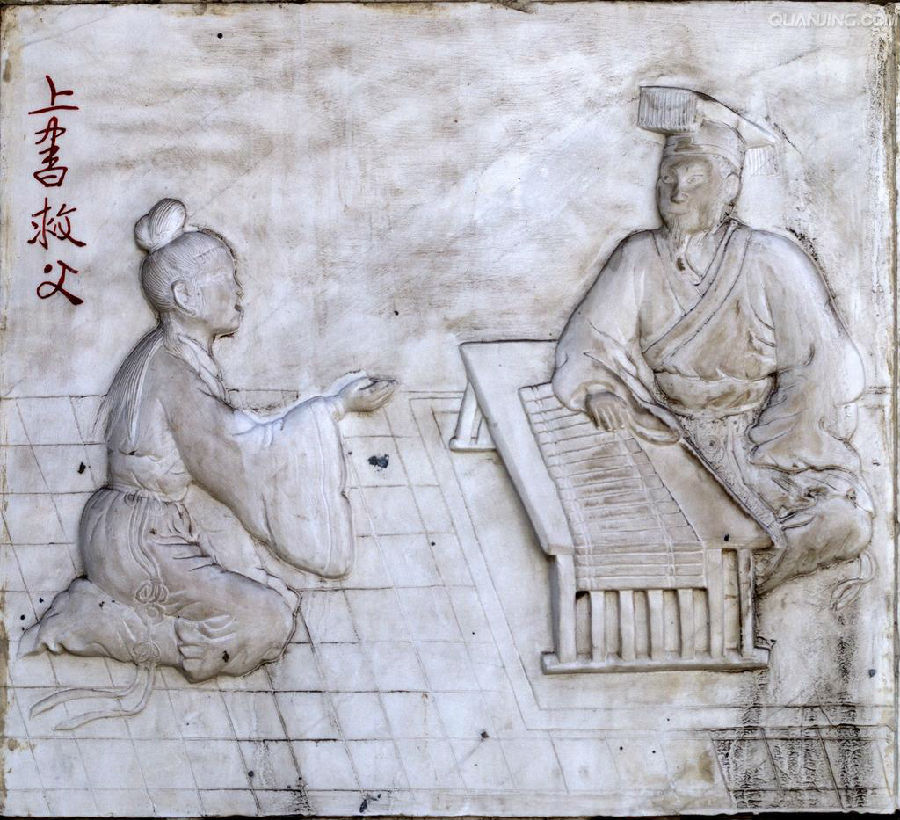 QUANJING.COM
上書救父